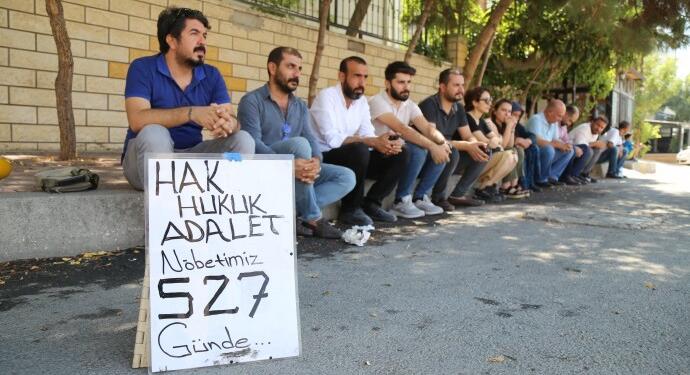 HAK
HUKUK
ADALET
Nöbetimiz
527
Günde...